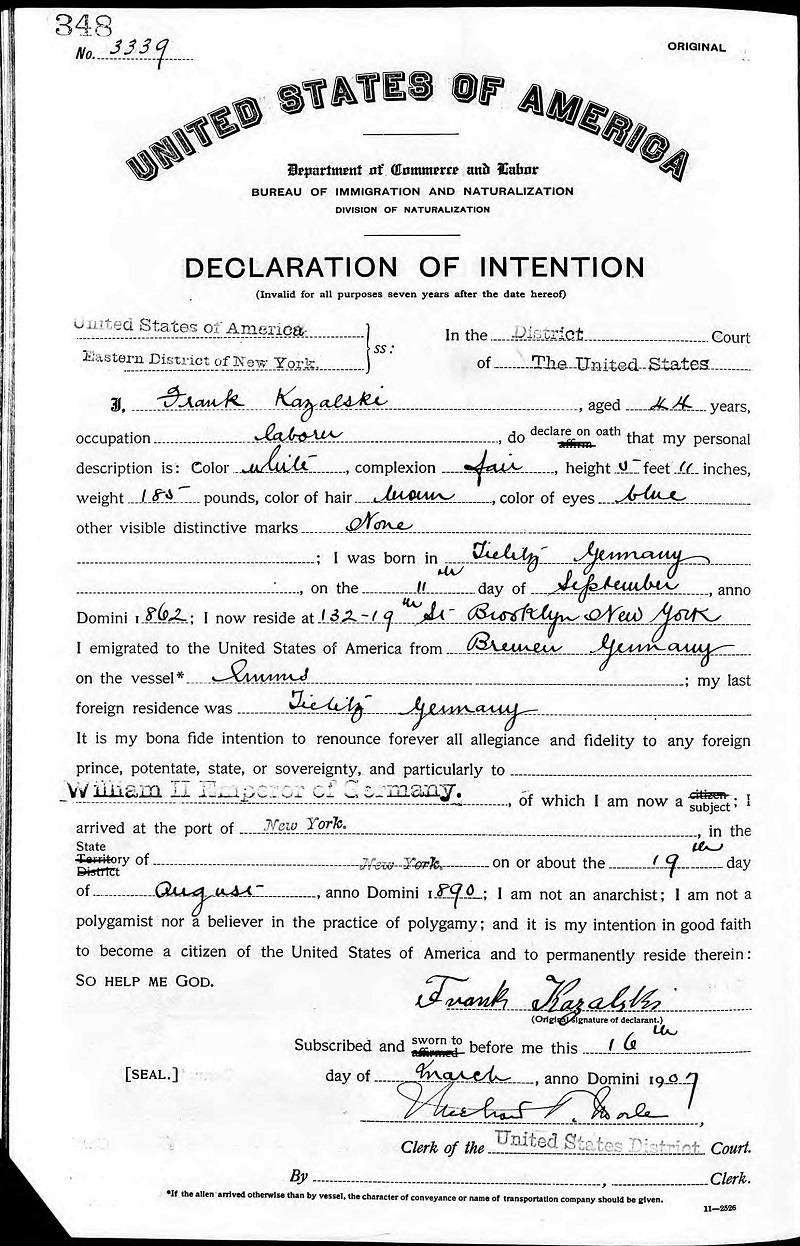 348
No. 3339
ORIGINAL
UNITED STATES OF AMERICA
Department of Commerce and Labor
BUREAU OF IMMIGRATION AND NATURALIZATION
DIVISION OF NATURALIZATION
DECLARATION OF INTENTION
(Invalid for all purposes seven years after the date hereof)
United States of America
Eastern District of New York.
ss:
In the District Court
of The United States
I, Frank Kazalski, aged 44 years,
occupation laborer, do declare on oath affirm that my personal
description is: Color white, complexion fair, height 5 feet 11 inches,
weight 185 pounds, color of hair brown, color of eyes blue
other visible distinctive marks None
; I was born in Tielitz Germany
, on the 11th day of September, anno
Domini 1862; I now reside at 132-19th St Brooklyn New York
I emigrated to the United States of America from Bremen Germany
on the vessel* ; my last
foreign residence was Tielitz Germany
It is my bona fide intention to renounce forever all allegiance and fidelity to any foreign
prince, potentate, state, or sovereignty, and particularly to
William II Emperor of Germany.
, of which I am now a citizen subject; I
arrived at the port of New York., in the
State Territory District of New York. on or about the 19th day
of August, anno Domini 1890; I am not an anarchist; I am not a
polygamist nor a believer in the practice of polygamy; and it is my intention in good faith
to become a citizen of the United States of America and to permanently reside therein:
SO HELP ME GOD.
Frank Kazalski
(Original signature of declarant.)
Subscribed and sworn to affirmed before me this 16th
[SEAL.]
day of March, anno Domini 1907
Clerk of the United States District Court.
By , Clerk.
*If the alien arrived otherwise than by vessel, the character of conveyance or name of transportation company should be given.
11—2526